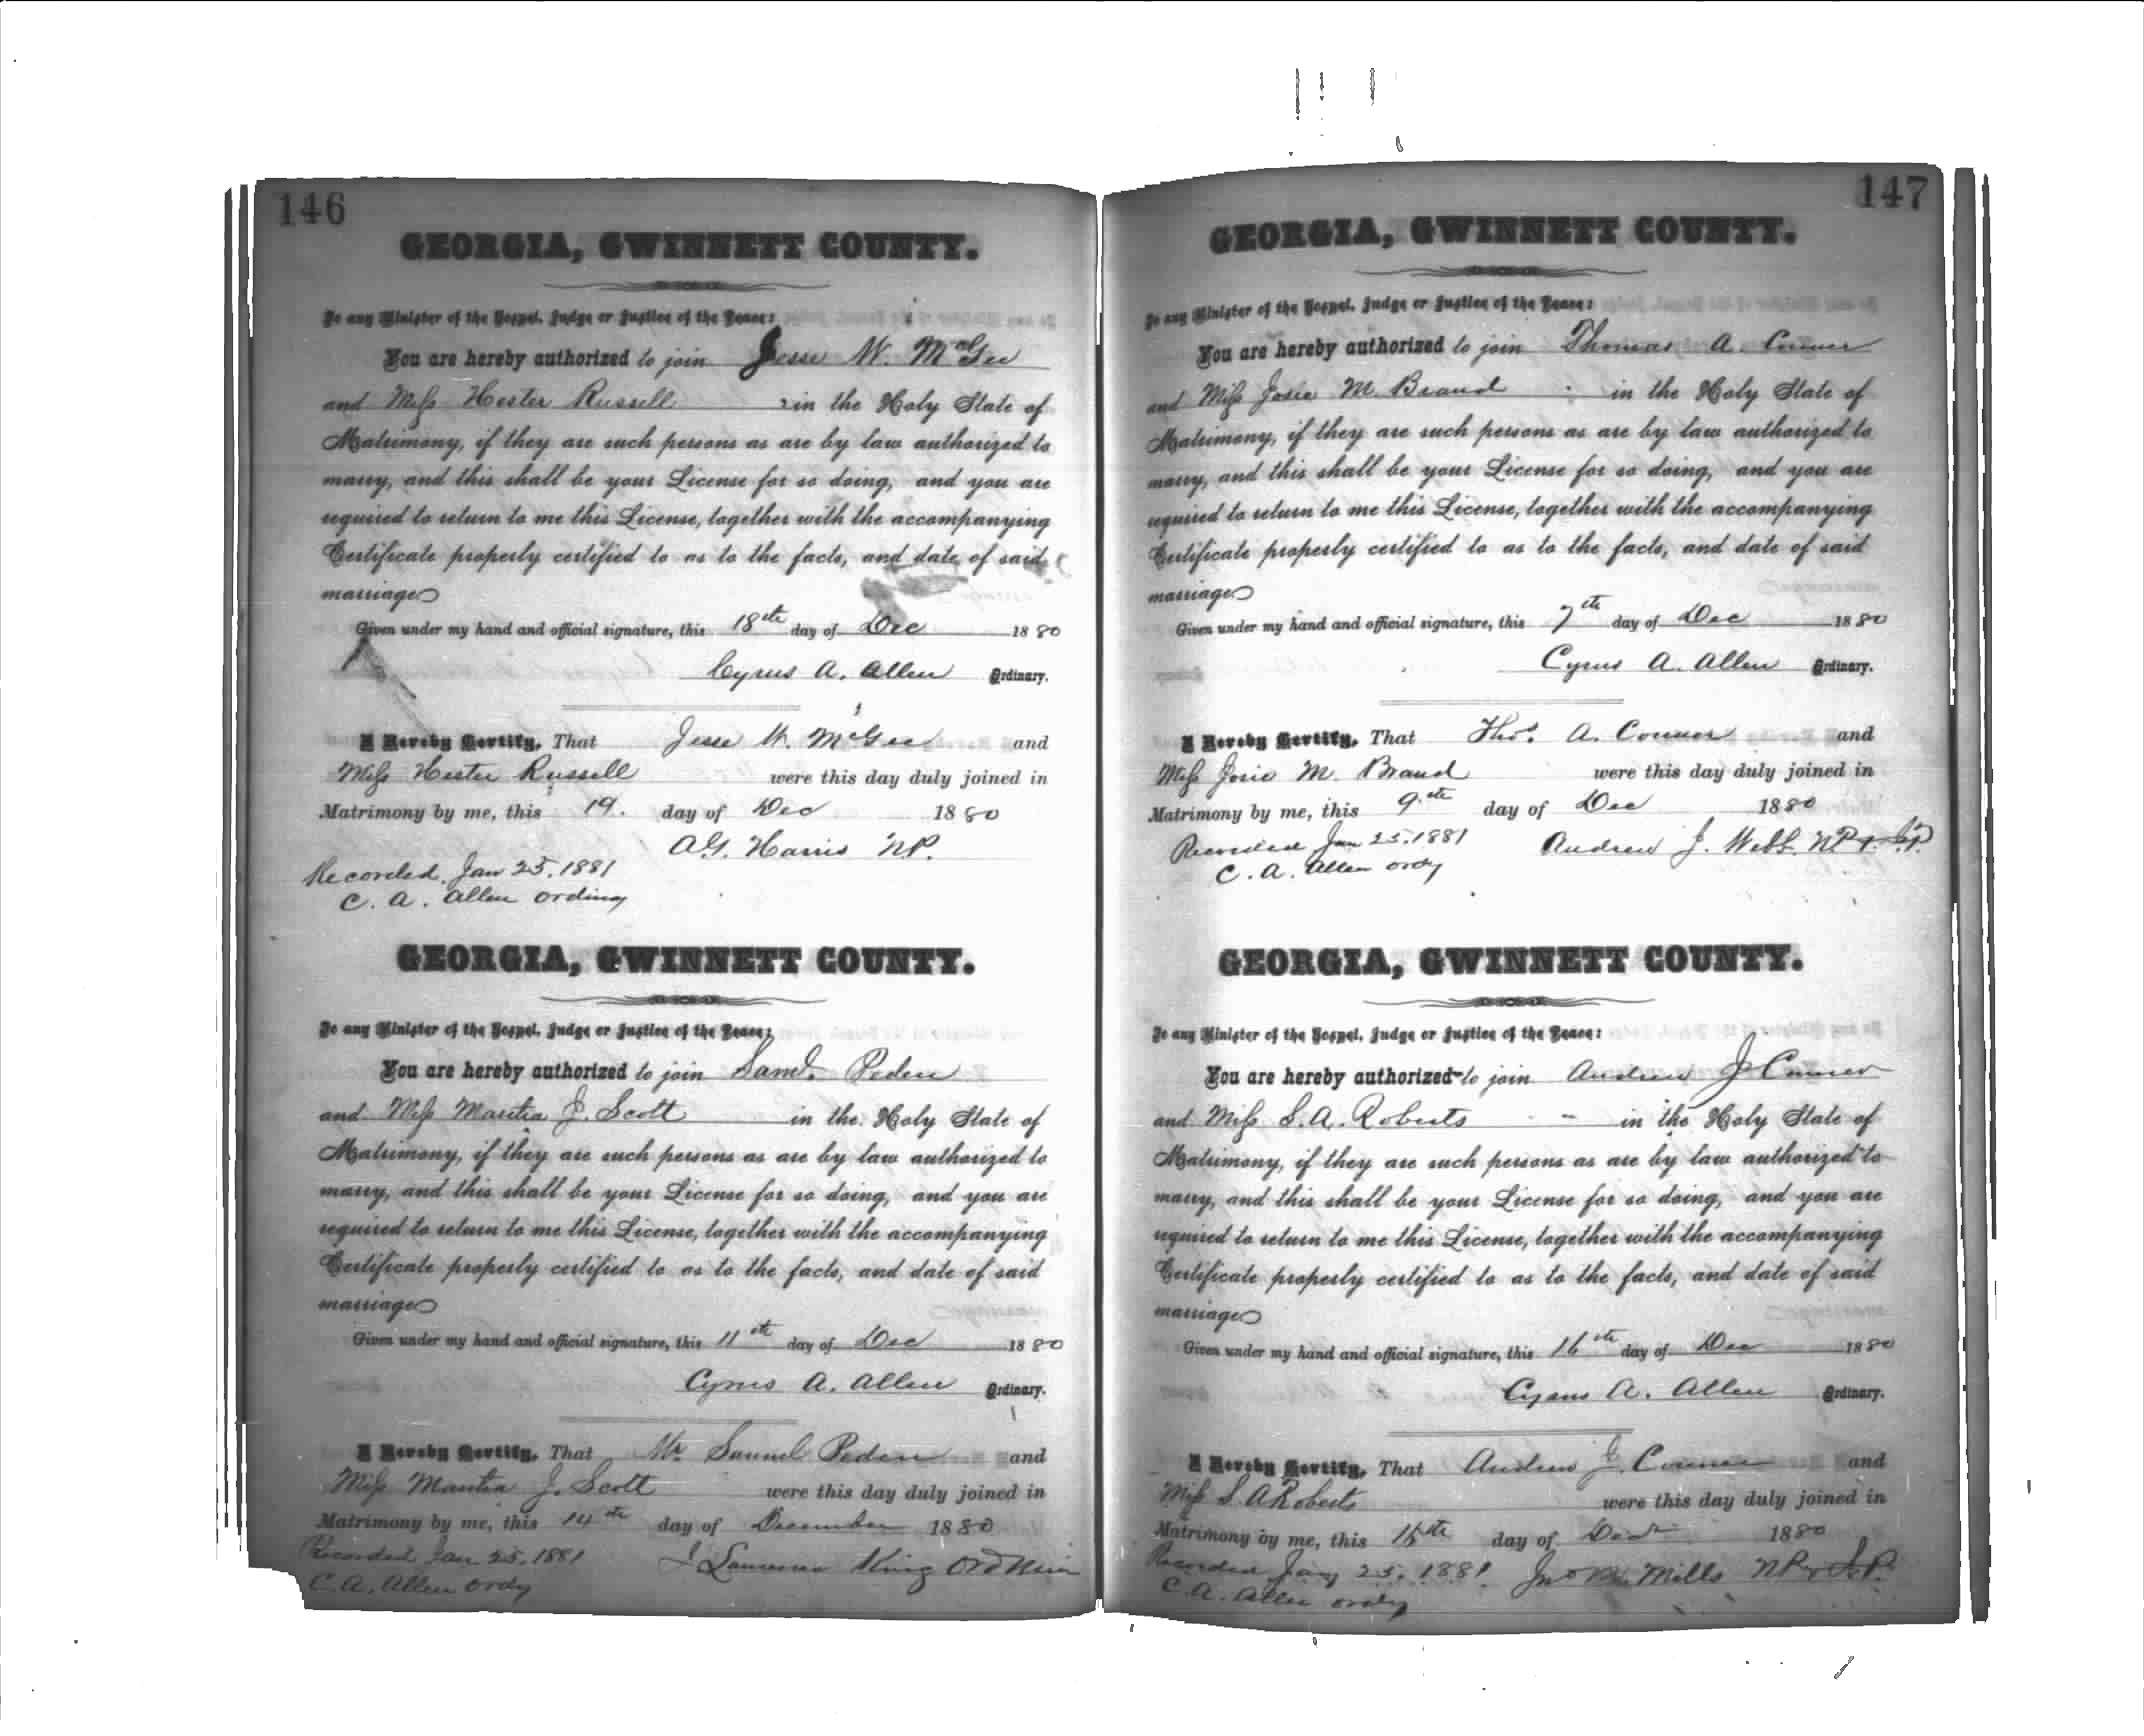 146
GEORGIA, GWINNETT COUNTY.
To any Minister of the Gospel, Judge or Justice of the Peace:
You are hereby authorized to join Jesse W. McGee
and Miss Hester Russell in the Holy State of
Matrimony, if they are such persons as are by law authorized to
marry, and this shall be your License for so doing, and you are
required to return to me this License, together with the accompanying
Certificate properly certified to as to the facts, and date of said
marriage
Given under my hand and official signature, this 18th day of Dec 1880
Cyrus A. Allen Ordinary.
I Hereby Certify, That Jesse W. McGee and
Miss Hester Russell were this day duly joined in
Matrimony by me, this 19. day of Dec 1880
A.G. Harris N.P.
Recorded, Jan 25, 1881
C. A. Allen ordinay
GEORGIA, GWINNETT COUNTY.
To any Minister of the Gospel, Judge or Justice of the Peace:
You are hereby authorized to join Saml. Peden
and Miss Mantia J. Scott in the Holy State of
Matrimony, if they are such persons as are by law authorized to
marry, and this shall be your License for so doing, and you are
required to return to me this License, together with the accompanying
Certificate properly certified to as to the facts, and date of said
marriage
Given under my hand and official signature, this 11th day of Dec 1880
Cyrus A. Allen Ordinary.
I Hereby Certify, That Mr. Samuel Peden and
Miss Mantia J. Scott were this day duly joined in
Matrimony by me, this 14th day of December 1880
Recorded Jan 25, 1881
King Ord Min
C. A. Allen ordy
147
GEORGIA, GWINNETT COUNTY.
To any Minister of the Gospel, Judge or Justice of the Peace:
You are hereby authorized to join Thomas A. Conner
and Miss Josie M. Brand in the Holy State of
Matrimony, if they are such persons as are by law authorized to
marry, and this shall be your License for so doing, and you are
required to return to me this License, together with the accompanying
Certificate properly certified to as to the facts, and date of said
marriage
Given under my hand and official signature, this 7th day of Dec 1880
Cyrus A. Allen Ordinary.
I Hereby Certify, That Thos. A. Connor and
Miss Josie M. Brand were this day duly joined in
Matrimony by me, this 9.th day of Dec 1880
Recorded Jan 25, 1881
Andrew J. Webb. N.P. & J.P.
C. A. Allen ordy
GEORGIA, GWINNETT COUNTY.
To any Minister of the Gospel, Judge or Justice of the Peace:
You are hereby authorized to join Andrew J Conner
and Miss S. A. Roberts in the Holy State of
Matrimony, if they are such persons as are by law authorized to
marry, and this shall be your License for so doing, and you are
required to return to me this License, together with the accompanying
Certificate properly certified to as to the facts, and date of said
marriage
Given under my hand and official signature, this 16th day of Dec 1880
Cyrus A. Allen Ordinary.
I Hereby Certify, That Andrew J. Conner and
Miss S. A Roberts were this day duly joined in
Matrimony by me, this 16th day of 1880
Recorded Jany 25, 1881. Jno Mills N.P. & J.P.
C. A. Allen ordy